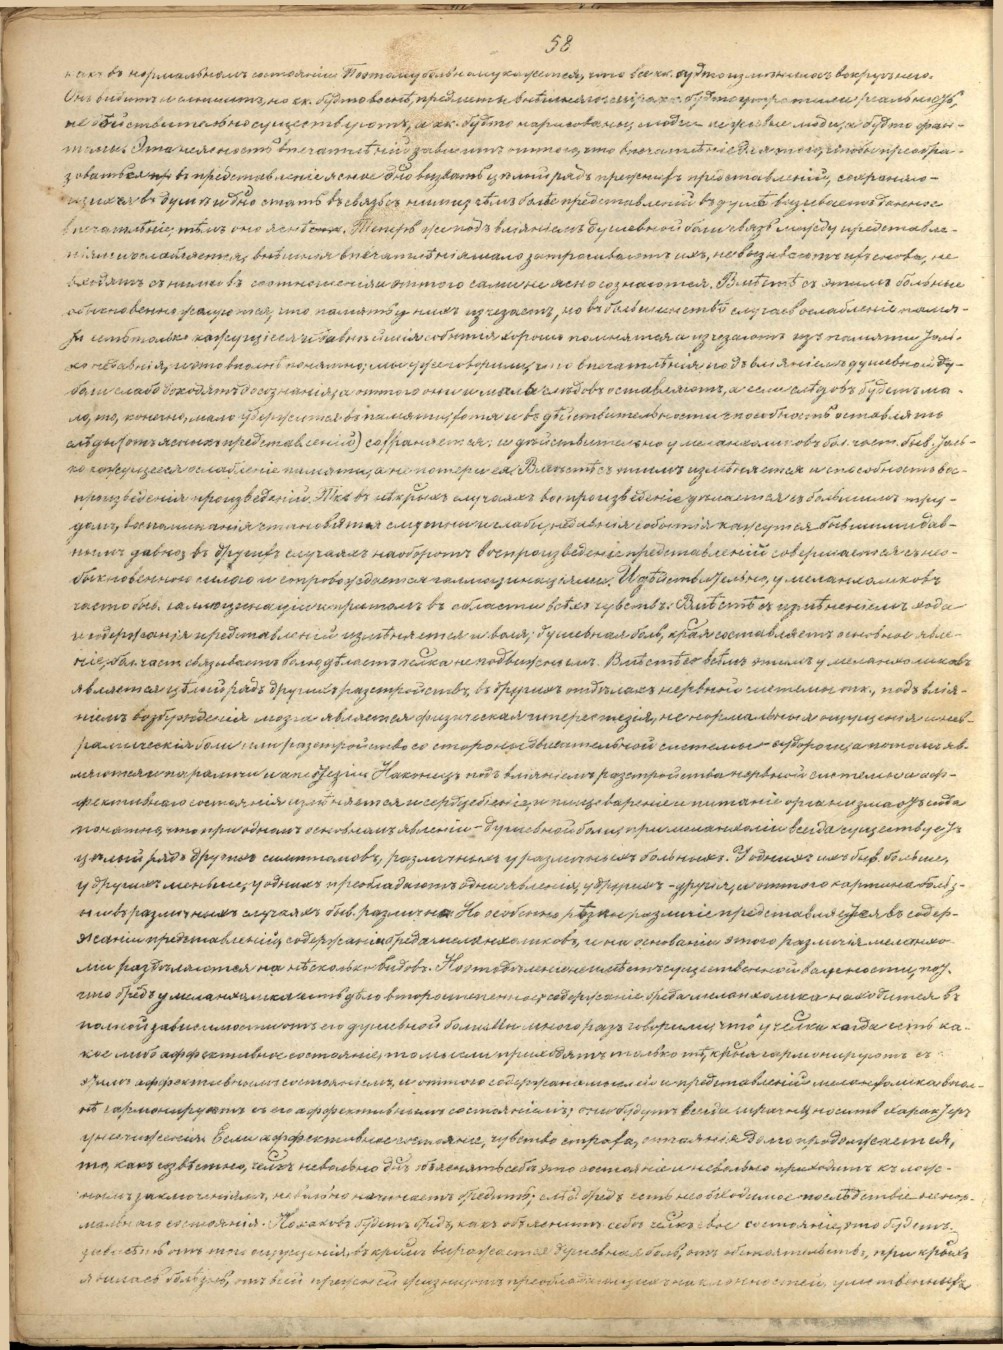 58
какъ въ нормальномъ состояніи. Поэтому больному кажется, что все кк. будто измѣнилось вокругъ него.
Онъ видитъ и слышитъ, но кк. будто во снѣ, предметы внѣшняго міра кк. будто утратили реальность,
не дѣйствительно существуютъ, а кк. будто нарисованы, люди не живые люди, а будто фан-
томы. Эта неясность впечатлѣній зависитъ оттого, что впечатлѣніе для того, чтобы преобра-
зоваться въ представленіе ясное дно вызвать цѣлый рядъ прежнихъ представленій, сохраняю-
щихся въ душѣ и дно стать въ связь съ ними; чѣмъ болѣе представленій въ душѣ вызываетъ данное
впечатлѣніе, тѣмъ оно яснѣе. Теперь же подъ вліяніемъ душевной боли связь между представле-
ніями ослабляется, внѣшнія впечатлѣнія мало затрогиваютъ ихъ, не вызываютъ ихъ снова, не
входятъ съ ними въ соотношенія и оттого сами не ясно сознаются. Вмѣстѣ съ этимъ больные
обыкновенно жалуются, что память у нихъ исчезаетъ, но въ большинствѣ случаевъ ослабленіе памя-
ти есть только кажущееся: давнѣйшія событія хорошо помнятся а исчезаютъ изъ памяти толь-
ко недавнія, и это вполнѣ понятно; мы уже говорили, что впечатлѣнія подъ вліяніемъ душевной бо-
ли слабо доходятъ до сознанія, а оттого они и мало слѣдовъ оставляютъ, а если слѣдовъ будетъ ма-
ло, то, конечно, мало удержится въ памяти, хотя и въ дѣйствительности способность оставлять
слѣды (отъ ясныхъ представленій) сохраняется: и дѣйствительно у меланхоликовъ бол. част. быв. толь-
ко кажущееся ослабленіе памяти, а не потеря ея. Вмѣстѣ съ этимъ измѣняется и способность вос-
произведенія произведеній. Такъ въ нѣкрыхъ случаяхъ воспроизведеніе дѣлается съ большимъ тру-
домъ, воспоминанія становятся смутны и слабы, недавнія событія кажутся бывшими дав-
нымъ давно; въ другихъ случаяхъ наоборотъ воспроизведеніе представленій совершается съ нео-
быкновенною силою и сопровождается галлюцинаціями. И дѣйствительно, у меланхоликовъ
часто быв. галлюцинаціи и притомъ въ области всѣхъ чувствъ. Вмѣстѣ съ измѣненіемъ хода
и содержанія представленій измѣняется и воля; душевная боль, края составляетъ основное явле-
ніе, бол. част. связываетъ волю, дѣлаетъ челка неподвижнымъ. Вмѣстѣ со всѣмъ этимъ у меланхоликовъ
является цѣлый рядъ другихъ разстройствъ, въ другихъ отдѣлахъ нервной системы: тк., подъ влія-
ніемъ возбужденія мозга является физическая гиперестезія, не нормальныя ощущенія и нев-
ралгическія боли; или разстройство со стороны двигательной системы - судороги, а потомъ яв-
ляются и параличи и анестезіи. Наконецъ подъ вліяніемъ разстройства нервной системы и аф-
фективнаго состоянія измѣняется и сердцебіеніе, и пищевареніе и питаніе организма. Отсюда
понятно, что при одномъ основномъ явленіи - душевной боли, при меланхоліи всегда существуетъ
цѣлый рядъ другихъ симптомовъ, различныхъ у различныхъ больныхъ. У однихъ ихъ быв. больше,
у другихъ меньше; у однихъ преобладаютъ одни явленія, у другихъ - другія, и оттого картина болѣз-
ни въ различныхъ случаяхъ быв. различна. Но особенно рѣзкое различіе представляется въ содер-
жаніи представленій, содержаніи бреда меланхоликовъ, и на основаніи этого различія меланхо-
ліи раздѣляются на нѣсколько видовъ. Но это дѣленіе не имѣетъ существенной важности, пот.
что бредъ у меланхолика есть дѣло второстепенное; содержаніе бреда меланхолика находится въ
полной зависимости отъ его душевной боли. Мы много разъ говорили, что у челка когда есть ка-
кое либо аффективное состояніе, то мысли приходятъ только тѣ, крыя гармонируютъ съ
этимъ аффективнымъ состояніемъ, и оттого содержаніе мыслей и представленій меланхолика впол-
нѣ гармонируютъ съ его аффективнымъ состояніемъ; они будутъ всегда мрачны, носить характеръ
уничиженія. Если аффективное состояніе, чувство страха, отчаянія долго продолжается,
то, какъ извѣстно, челкъ невольно дич. объяснять себѣ это состояніе и невольно приходитъ къ лож-
нымъ заключеніямъ, невольно начинаетъ бредить; слѣд. бредъ есть необходимое послѣдствіе ненор-
мальнаго состоянія. Но каковъ будетъ бредъ, какъ объяснитъ себѣ челкъ свое состояніе, это будетъ
зависѣть отъ того ощущенія, въ кромъ выражается душевная боль, отъ обстоятельствъ, при крыхъ
явилась болѣзнь, отъ всей прежней жизни, отъ преобладающихъ наклонностей, умственныхъ